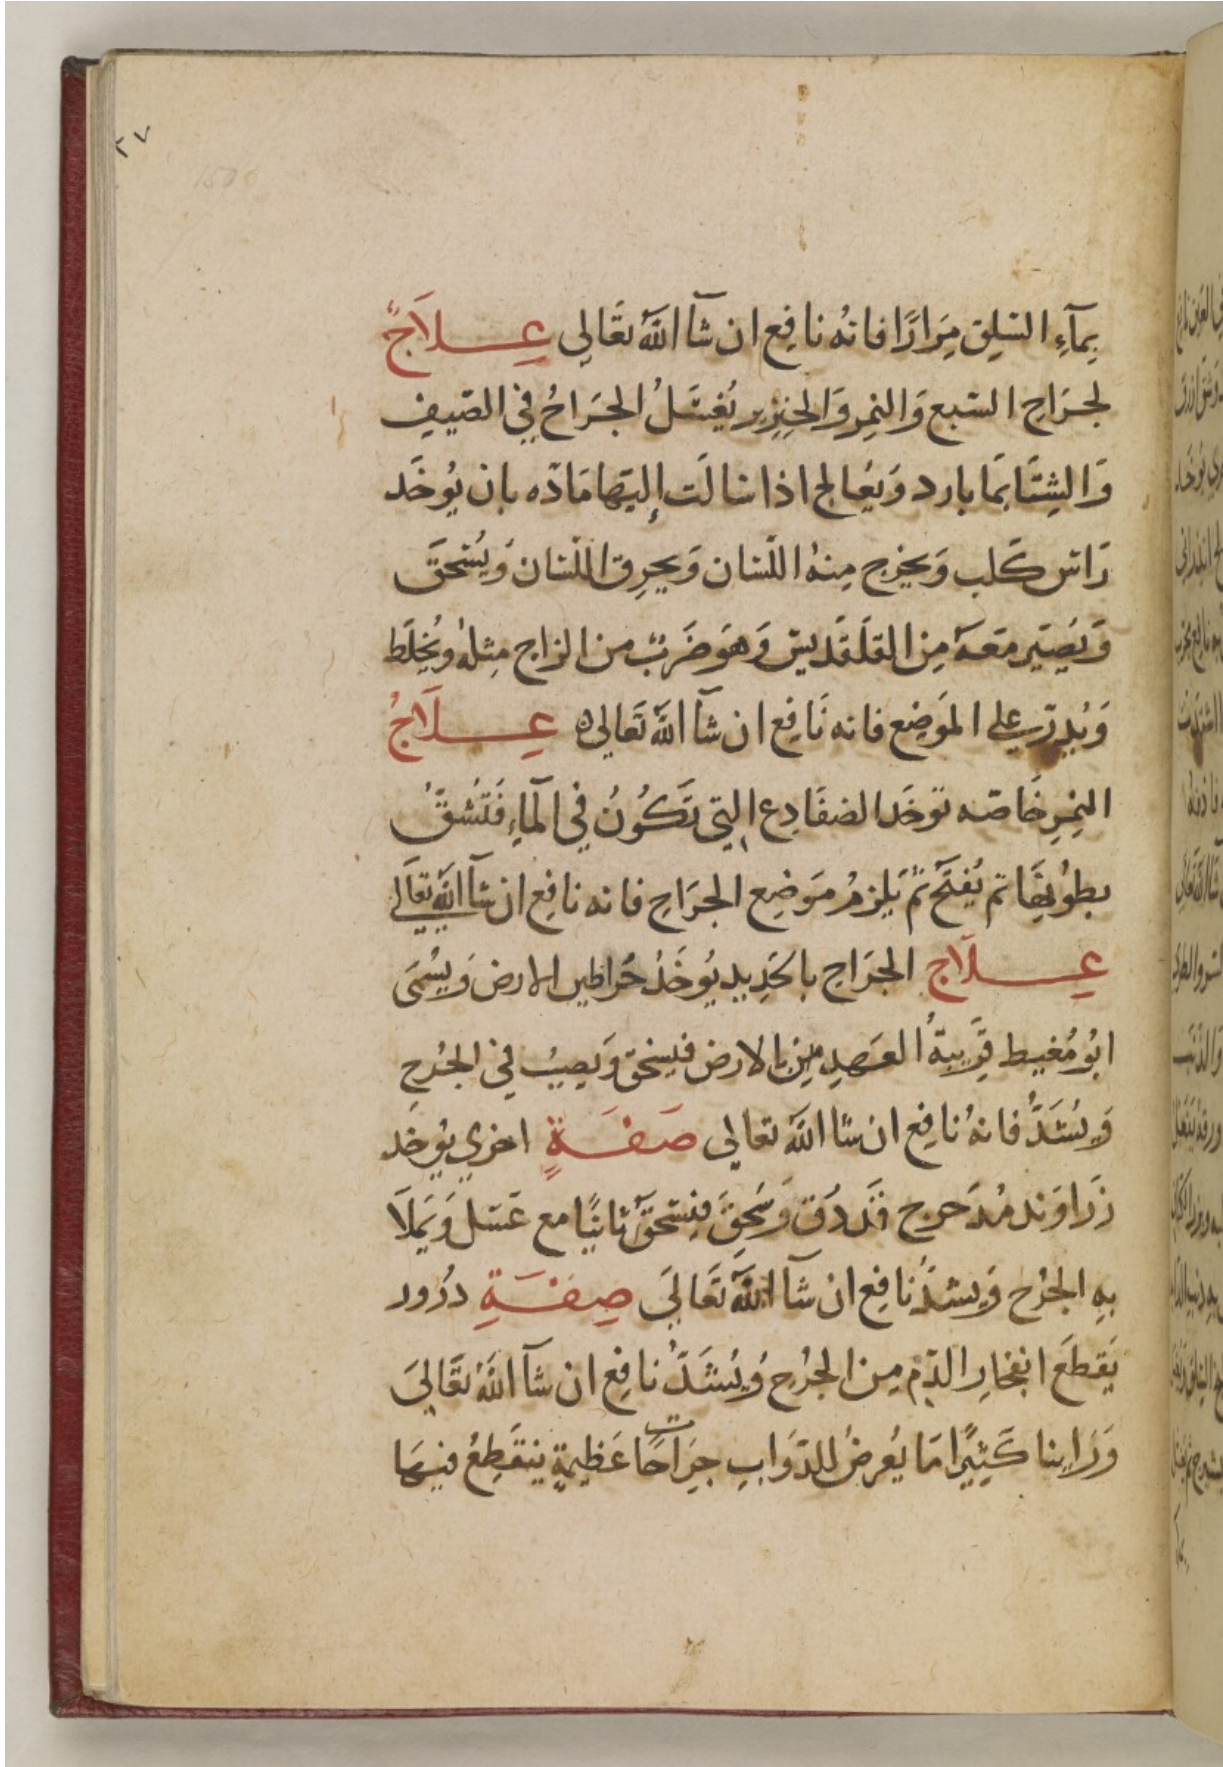 ٢٧
بِمآءِ السلِق مِرَارًا فانهُ نافِع ان شآ اللّه تعَالي عِلاَجٌ
لجرَاحِ السّبع وَالنمِر وَالخِنزِير يُغسَلُ الجرَاحُ فِي الصَيفِ
وَالشِتَا بمَا بارد وَيعُالج اذا سَالَت إليَها مَادّه بان يُوخَد
رَاس كَلب وَيخرج مِنهُ اللّسَان وَيحرِق اللسَان وَيُسحَق
وَيصَيَر مَعَهَ مِن القلَقدَيس وَهوَ ضَربٌ من الزاج مِثلهُ ويُخلَط
وَيُدرّ علي الموَضِع فانه نَافِع ان شآ اللّه تَعالي ه عِلَاجُ
النِمِرِ خَاصّه توخَد الضفَادِع التِي تَكُونُ في المآءِ فَتُشَقُّ
بطوُنِهَا تم يُفتَح تُمّ يَلزمُ مَوَضِع الجرَاحِ فانه نافِع ان شآ اللّه تعَالي
عِلَاج الجرَاحِ بالحَدِيد يُوخَدُ خَراطين الارض وَيسُمىَ
ابُو مُغيط قَرِيبةُ العَهدِ مِن الارض فيسحق وَيصيُر في الجُرحِ
وَيشَدُّ فانهُ نافِع ان شا اللّه تعالي صَفَةٍ اخري يُوخَد
زَرَاوَند مُدَحرج قَد دُق وَسُحِقَ فيَسحَقَ ثانيًا مع عَسَل وَيَملَا
بِهِ الجرُح وَيشدّ نَافِع ان شآ اللّه تَعَاليَ صِفةِ درُور
يَقطَع انفجَارِ الدّمِ مِن الجرُحِ وُيُشَدُّ نافِع ان شآ اللّه تعَالىَ
وَرَاينا كَثِيرًا مَا يُعرضُ للدَوَابِ جِرَاحَات عَظيمةٍ ينقَطِعُ فيهَا